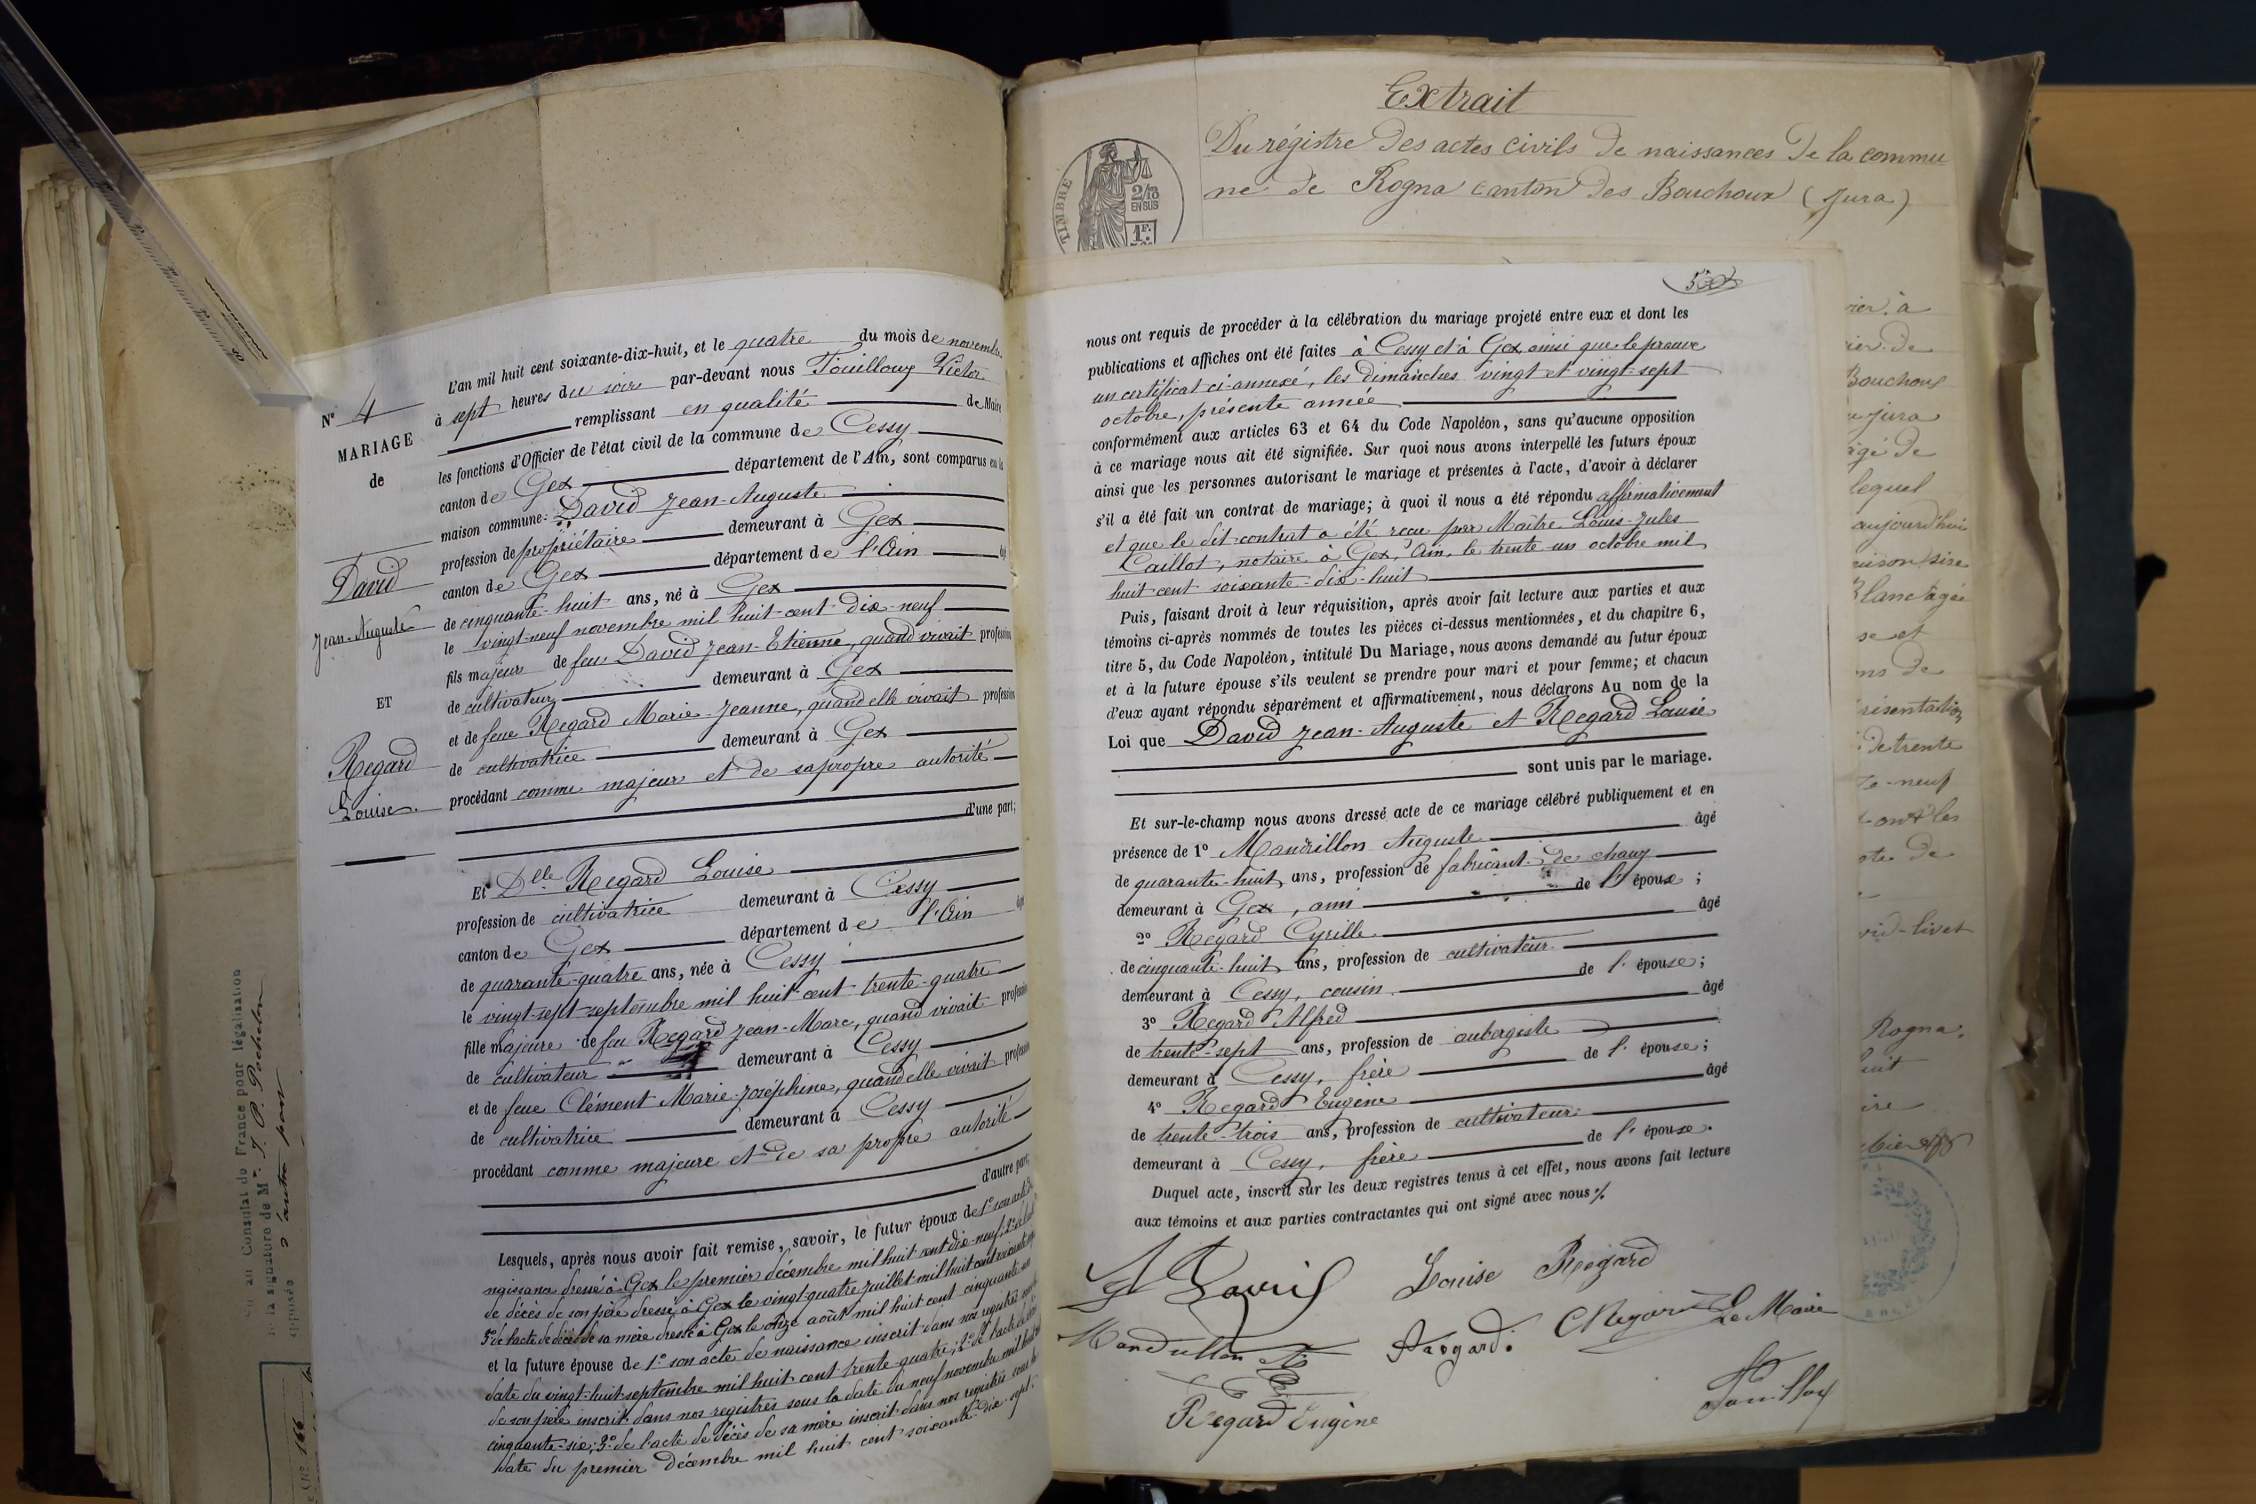 Extrait
Du régistre des actes civils de naissances de la commu
ne de Rogna canton des Bouchoux (Jura)
TIMBRE
2/10
EN SUS
1F.
N° 4
MARIAGE
de
David
Jean-Auguste
ET
Regard
Louise
L'an mil huit cent soixante-dix-huit, et le quatre du mois de novembre
à sept heures du soir par-devant nous Fouilloux Victor
remplissant en qualité de Maire
les fonctions d'Officier de l'état civil de la commune de Cessy
canton de Gex département de l'Ain, sont comparus en la
maison commune: David Jean-Auguste
profession de propriétaire demeurant à Gex
canton de Gex département de l'Ain âgé
de cinquante-huit ans, né à Gex
le vingt-neuf novembre mil huit-cent dix-neuf
fils majeur de feu David Jean-Etienne, quand vivait profession
de cultivateur demeurant à Gex
et de feue Regard Marie-Jeanne, quand elle vivait profession
de cultivatrice demeurant à Gex
procédant comme majeur et de sa propre autorité
d'une part;
Et Dlle Regard Louise
profession de cultivatrice demeurant à Cessy
canton de Gex département de l'Ain âgée
de quarante-quatre ans, née à Cessy
le vingt-sept septembre mil huit cent trente-quatre
fille majeure de feu Regard Jean-Marc, quand vivait profession
de cultivateur demeurant à Cessy
et de feue Clément Marie-Joséphine, quand elle vivait profession
de cultivatrice demeurant à Cessy
procédant comme majeure et de sa propre autorité
d'autre part,
Lesquels, après nous avoir fait remise, savoir, le futur époux de 1° son acte de
naissance dressé à Gex le premier décembre mil huit cent dix-neuf; 2° de l'acte
de décès de son père dressé à Gex le vingt-quatre juillet mil huit cent
3° de l'acte de décès de sa mère dressé à Gex le onze août mil huit cent cinquante
et la future épouse de 1° son acte de naissance inscrit dans nos registres sous la
date du vingt-huit septembre mil huit cent trente-quatre; 2° de l'acte de décès
de son père inscrit dans nos registres sous la date du neuf novembre mil huit cent
cinquante-six; 3° de l'acte de décès de sa mère inscrit dans nos registres sous la
date du premier décembre mil huit cent soixante-dix-sept.
nous ont requis de procéder à la célébration du mariage projeté entre eux et dont les
publications et affiches ont été faites à Cessy et à Gex, ainsi que le prouve
un certificat ci-annexé, les dimanches vingt et vingt-sept
octobre, présente année
conformément aux articles 63 et 64 du Code Napoléon, sans qu'aucune opposition
à ce mariage nous ait été signifiée. Sur quoi nous avons interpellé les futurs époux
ainsi que les personnes autorisant le mariage et présentes à l'acte, d'avoir à déclarer
s'il a été fait un contrat de mariage; à quoi il nous a été répondu affirmativement
et que le dit contrat a été reçu par Maître Louis-Jules
Caillot, notaire à Gex, Ain, le trente-un octobre mil
huit-cent soixante-dix-huit
Puis, faisant droit à leur réquisition, après avoir fait lecture aux parties et aux
témoins ci-après nommés de toutes les pièces ci-dessus mentionnées, et du chapitre 6,
titre 5, du Code Napoléon, intitulé Du Mariage, nous avons demandé au futur époux
et à la future épouse s'ils veulent se prendre pour mari et pour femme; et chacun
d'eux ayant répondu séparément et affirmativement, nous déclarons Au nom de la
Loi que David Jean-Auguste et Regard Louise
sont unis par le mariage.
Et sur-le-champ nous avons dressé acte de ce mariage célébré publiquement et en
présence de 1° Mandrillon Auguste âgé
de quarante-huit ans, profession de fabricant de chaux
demeurant à Gex, ami de l'époux;
2° Regard Cyrille âgé
de cinquante-huit ans, profession de cultivateur
demeurant à Cessy, cousin de l'épouse;
3° Regard Alfred âgé
de trente-sept ans, profession de aubergiste
demeurant à Cessy, frère de l'épouse;
4° Regard Eugène âgé
de trente-trois ans, profession de cultivateur
demeurant à Cessy, frère de l'épouse.
Duquel acte, inscrit sur les deux registres tenus à cet effet, nous avons fait lecture
aux témoins et aux parties contractantes qui ont signé avec nous
David Louise Regard
Mandrillon Regard. C Regard Le Maire
Regard Eugène
Fouilloux
Bouchoux
jura
âgé de
lequel
aujourd'hui
se et
de trente
Rogna.
au Consulat de France pour légalisation
de la signature de Mr.
apposée
N° 166